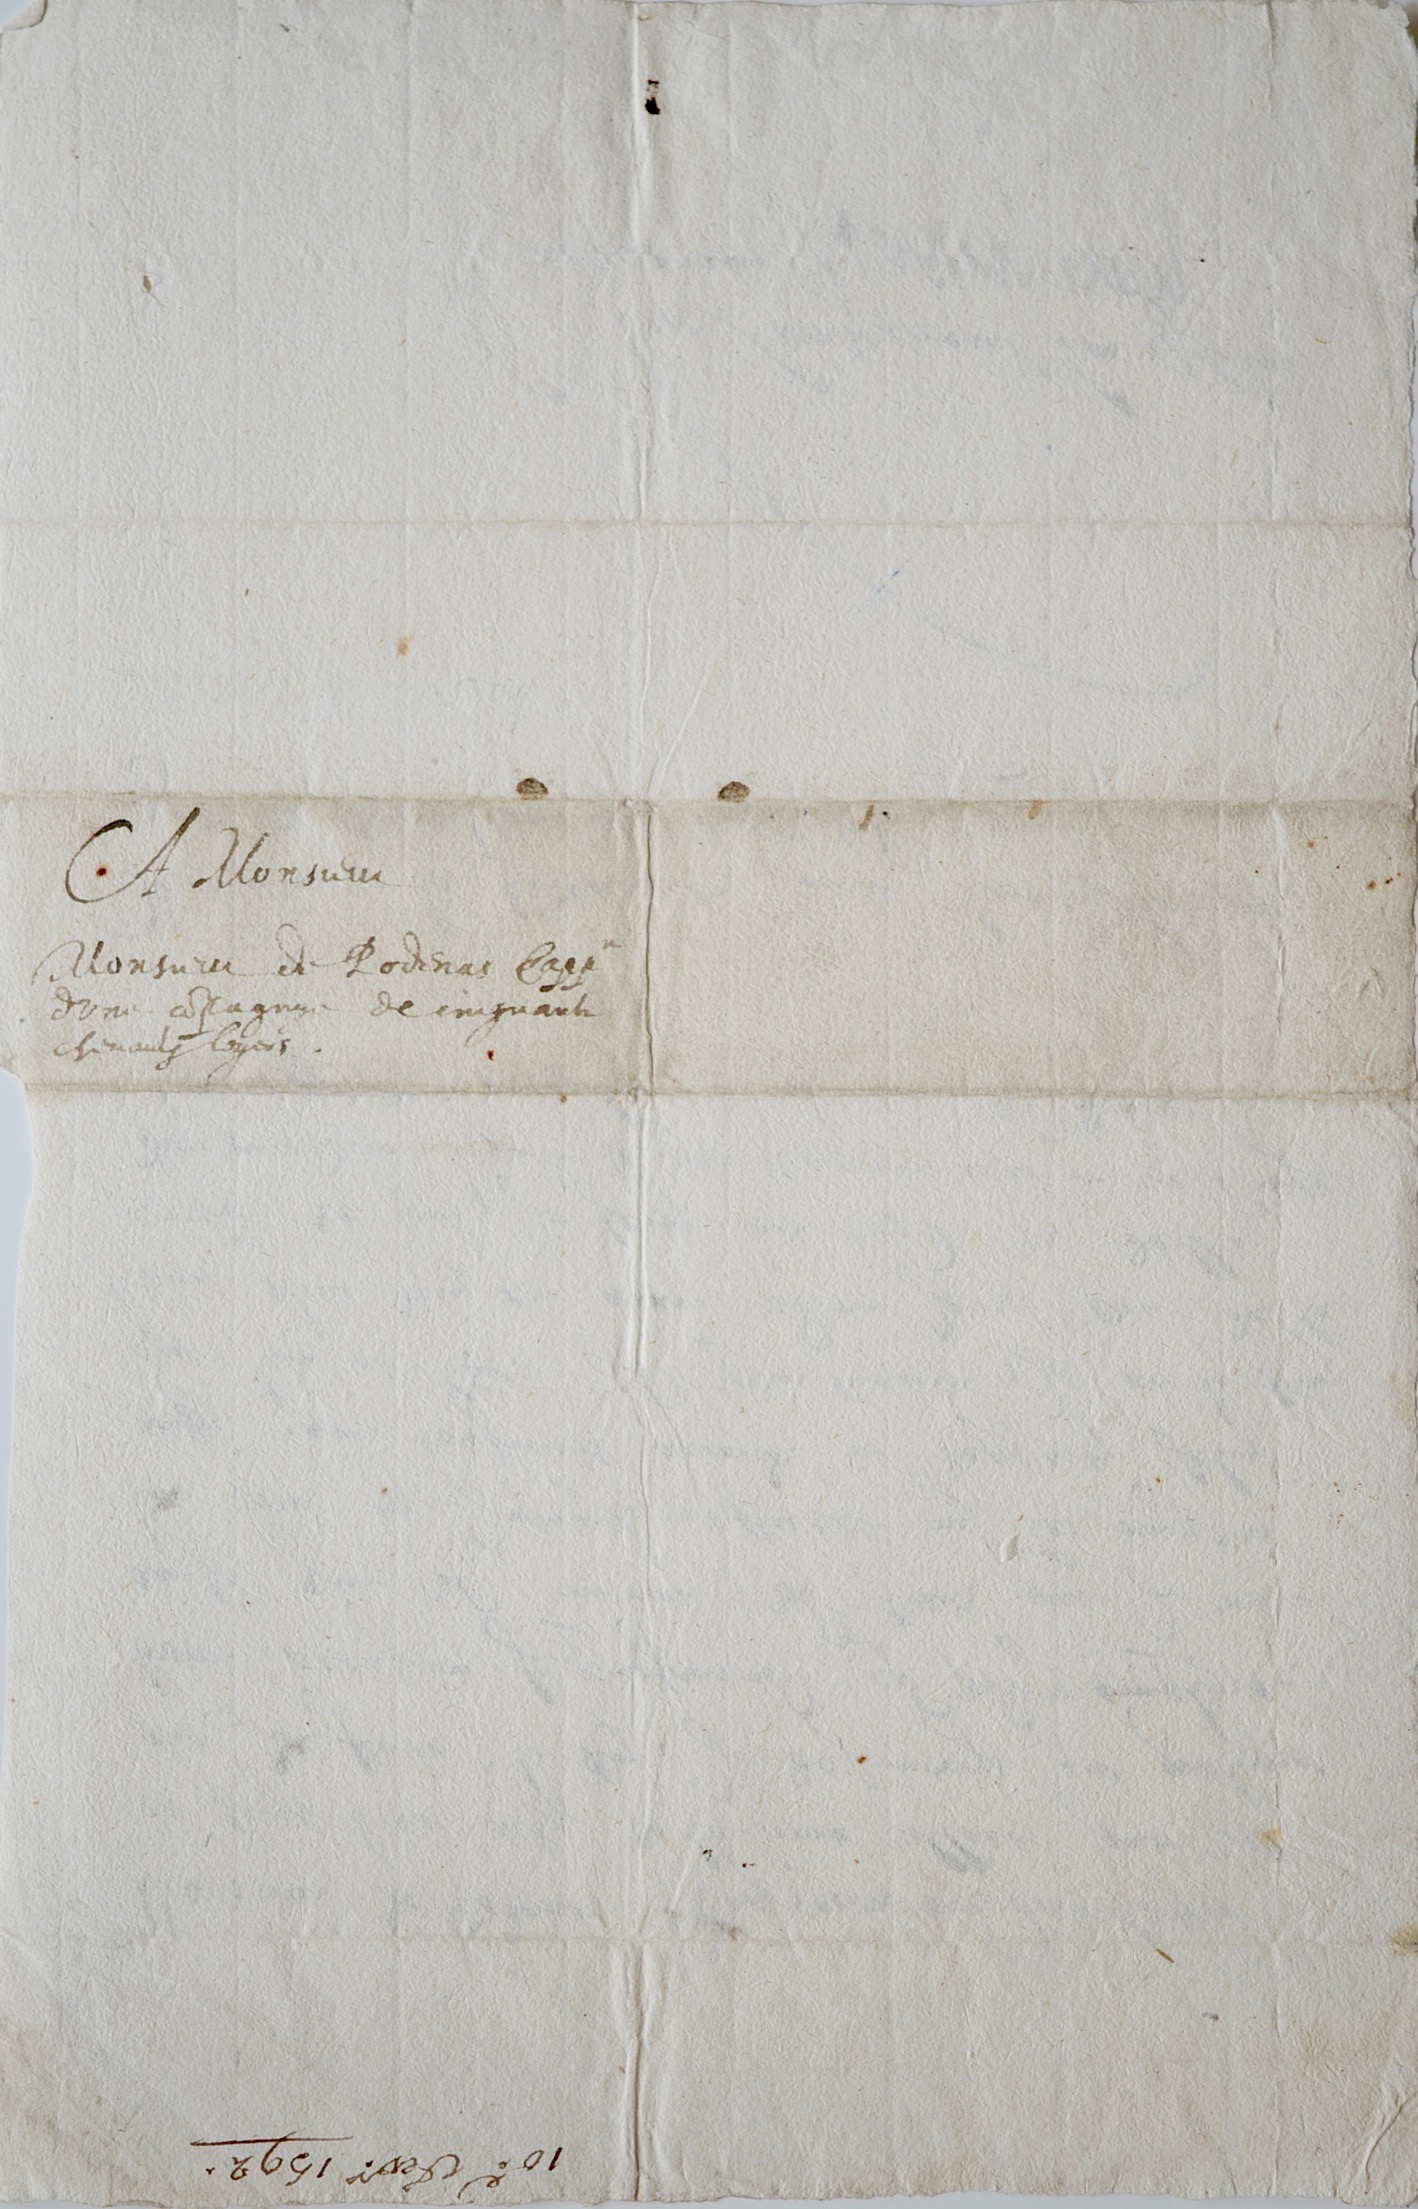 A Monsieur
Monsieur de Podenas Capp^n
d'vne cõpagnye de cinquante
cheuaulx legers .
10.e 1592.